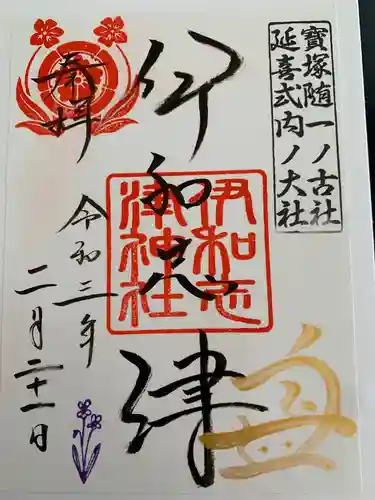 寶塚随一ノ古社
延喜式内ノ大社
伊和志津
伊和志
津神社
奉拝
令和三年
二月二十一日